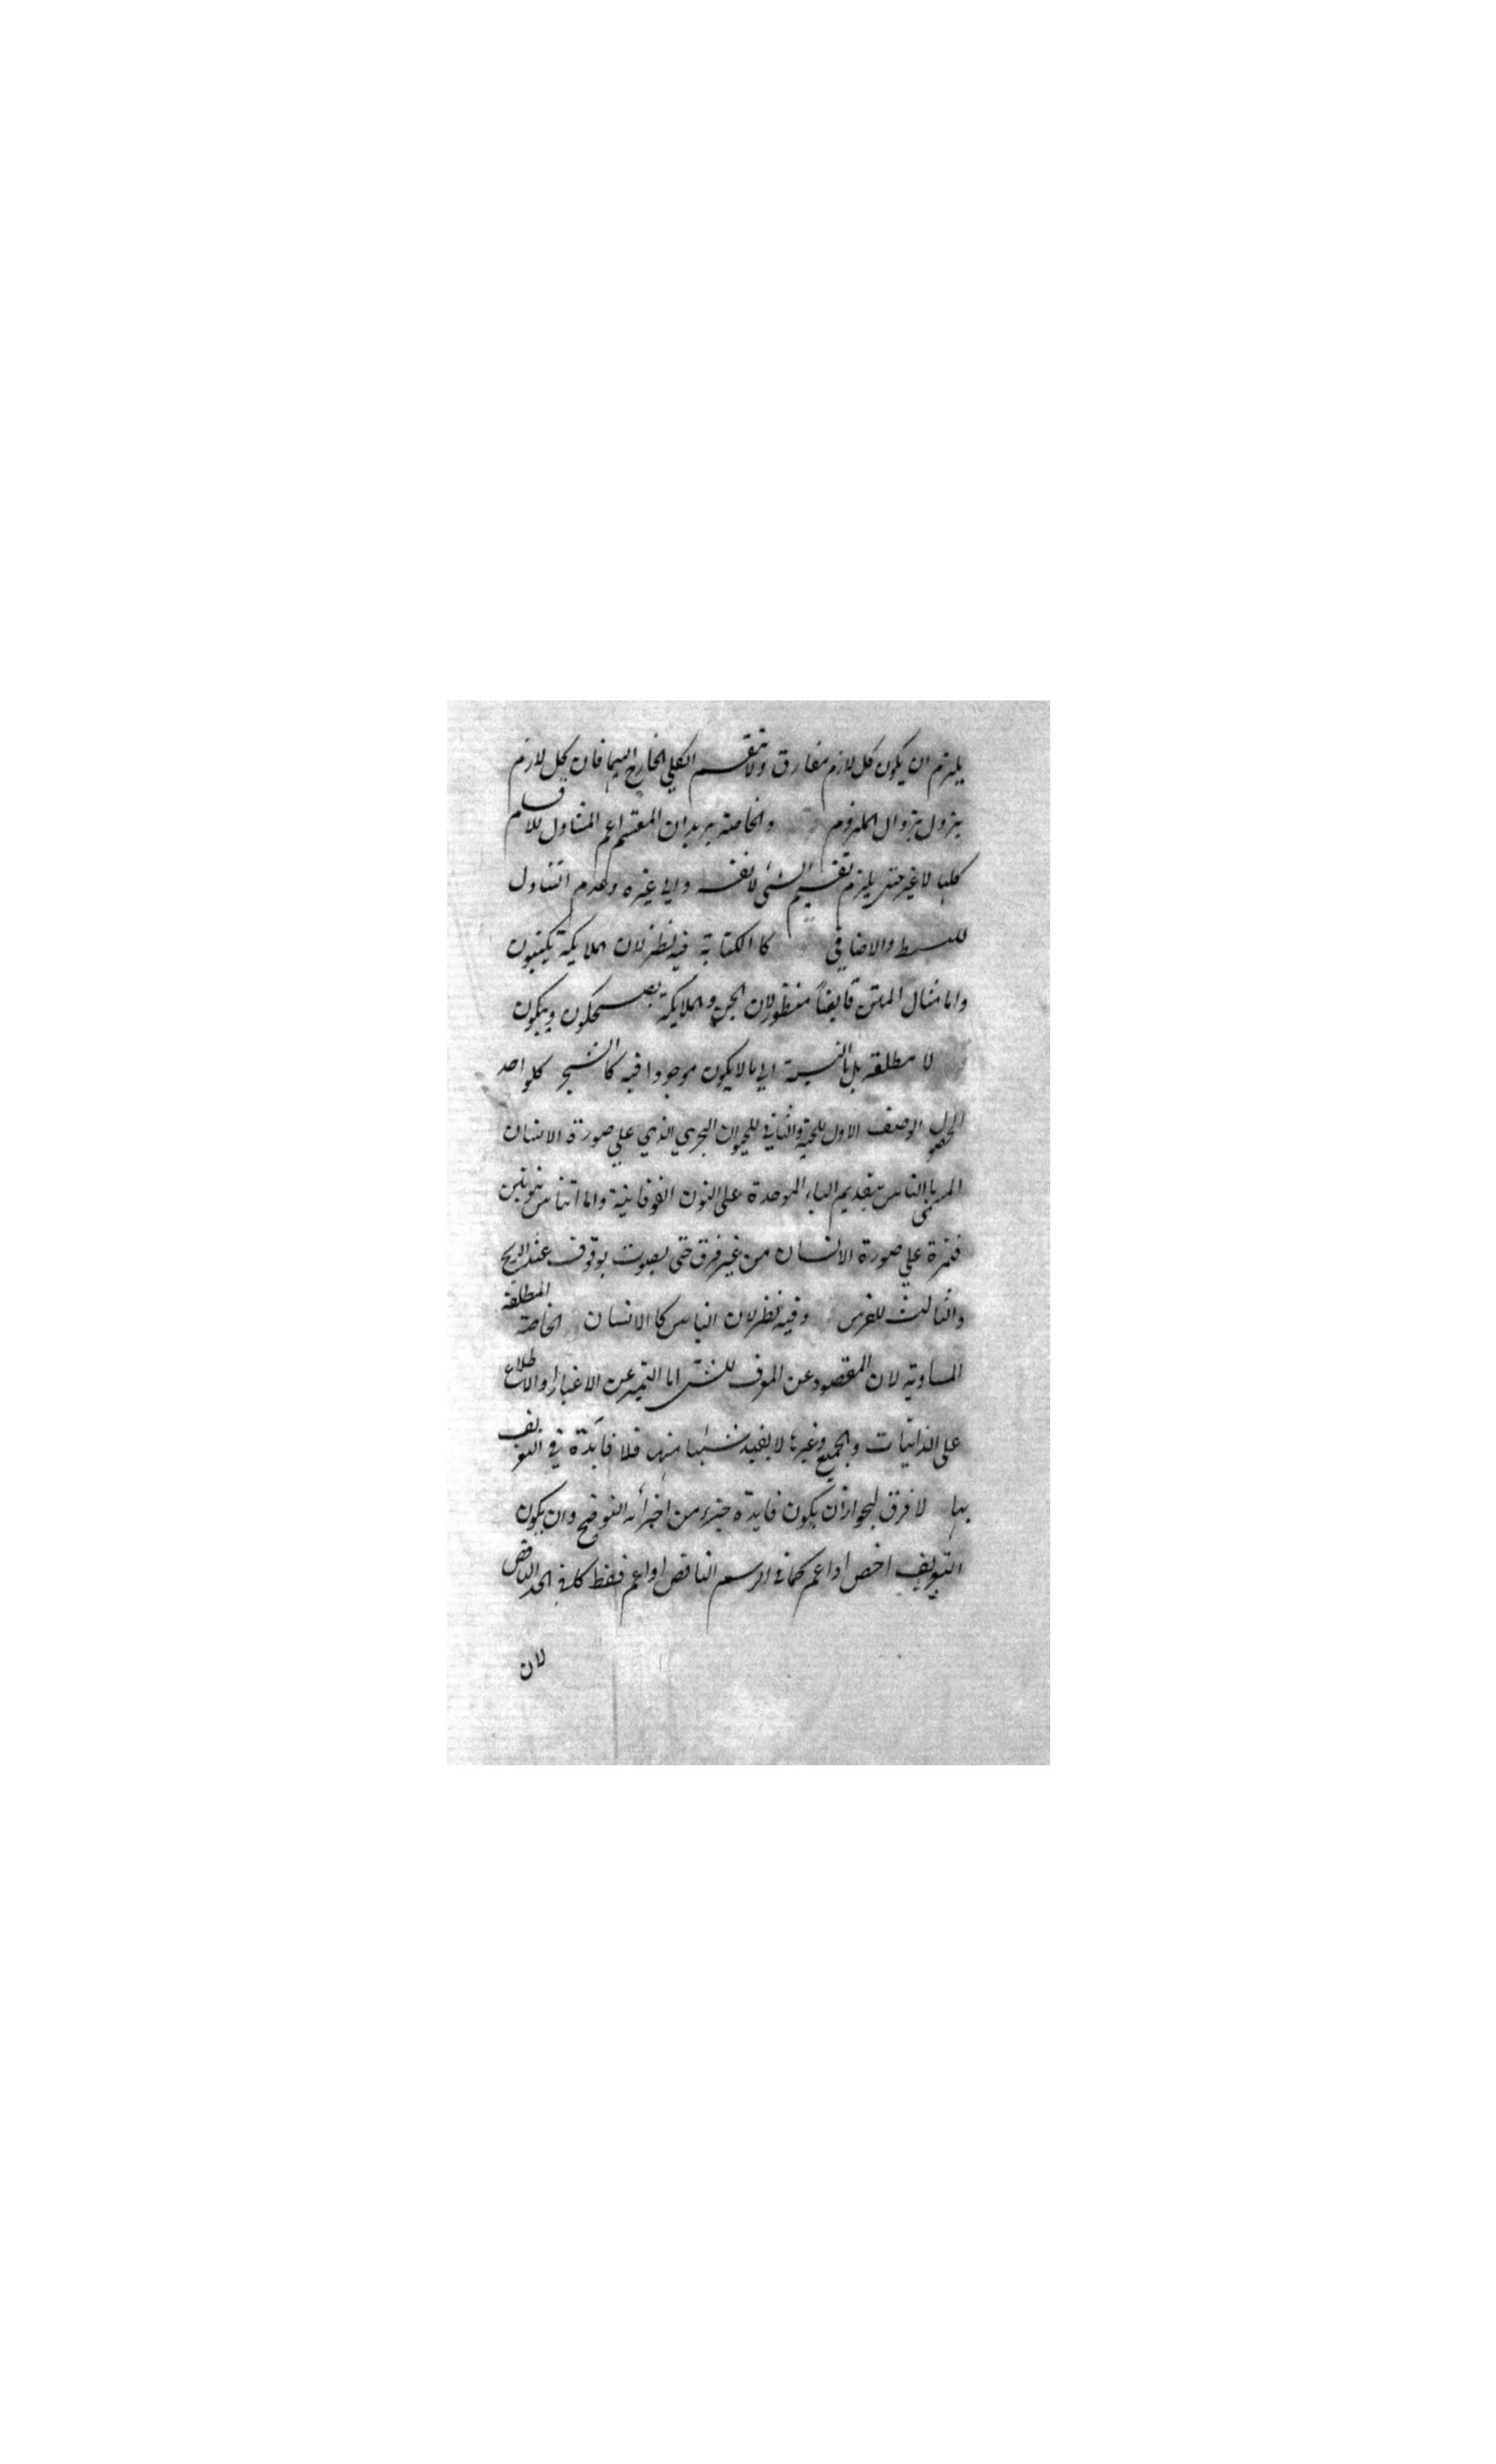 يلزم ان يكون كل لازم مفارق ولا ينقسم الكلي الخارج اليهما فان كل لازم
يزول بزوال الملزوم والخاصة يريد ان المقسم اعم المتناول للاقسام
كلها لا غير حتى يلزم تقسيم الشئ لا نفسه والى غيره وعدم التناول
للبسيط والاضافي كا الكتابة فيه نظر لان الملايكة يكتبون
واما مثال المتن فايضاً منظور لان الجن والملايكة يضحكون ويبكون
لا مطلقة بل بالنسبة الى ما لا يكون موجودا فيه كالشبح كلواحد
الحصول الوصف الاول للحية والثاني للحيوان البحري الذي على صورة الانسان
المسمى بالناس بتقديم الباء الموحدة على النون الفوقانية واما النناس بنونين
على صورة الانسان من غير فرق حتى بصوت يوقوف عند الريح
والثالث للفرس وفيه نظر لان الناس كا الانسان الخاصة المطلقة
المساوية لان المقصود عن المعرف للشئ اما التميز عن الاغيار او الاطلاع
على الذاتيات والجميع وغيرها لا يفيد شيئا منها فلا فايدة في التعريف
بها لا فرق لجواز ان يكون فايدة جزء من اجزائه التوضيح وان يكون
التعريف اخص او اعم كما في الرسم الناقص او اعم فقط كما في الحد الناقص
لان